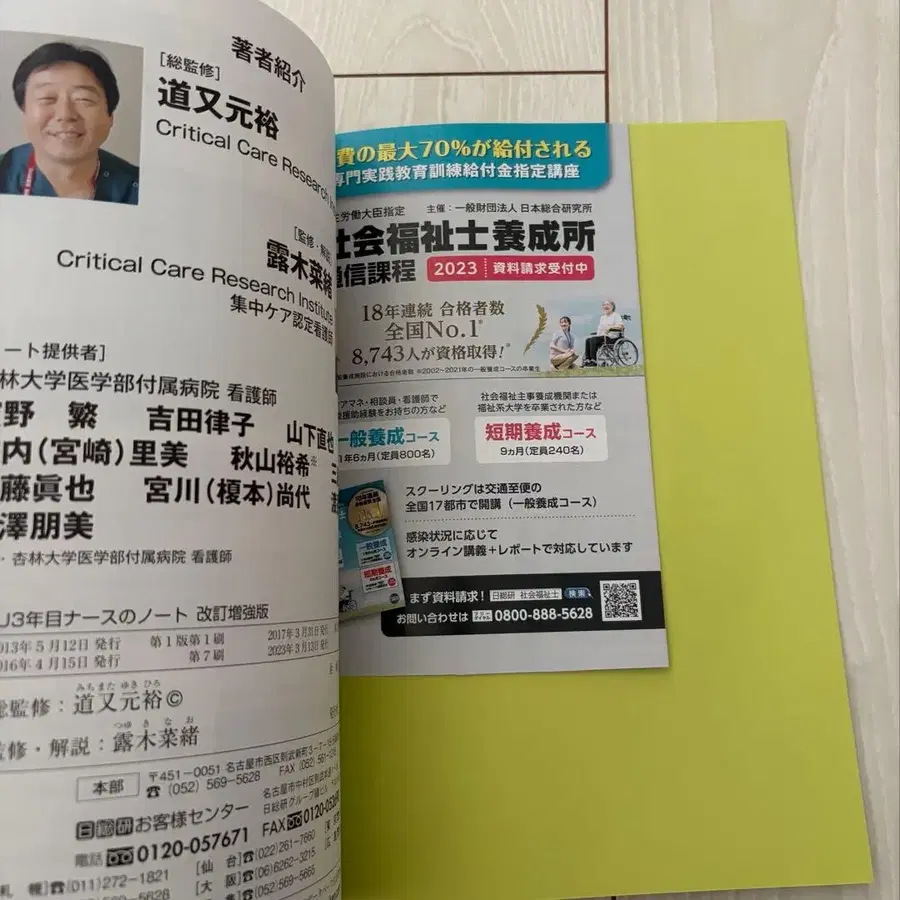 著者紹介
[総監修]
道又元裕
Critical Care Research
[監修・解説]
露木菜緒
Critical Care Research Institute
集中ケア認定看護師
ート提供者]
林大学医学部付属病院 看護師
野 繁 吉田律子 山下直也
内(宮崎)里美 秋山裕希※ 三
藤眞也 宮川(榎本)尚代
澤朋美
・杏林大学医学部付属病院 看護師
U3年目ナースのノート 改訂増強版
013年5月12日 発行 第1版第1刷 2017年3月31日 発行
016年4月15日 発行 第7刷 2023年3月13日 発行
みちまた ゆき ひろ
総監修:道又元裕©
つゆ き な お
監修・解説:露木菜緒
本部
〒451-0051 名古屋市西区則武新町3-7-
☎(052)569-5628 FAX (052)561-
日総研お客様センター
名古屋市中村区則武本通
日総研グループ縁ビル
電話 0120-057671 FAX 0120-052
札 幌]☎(011)272-1821 [仙 台]☎(022)261-7660
[大 阪]☎(06)6262-3215
569-5628
☎(052)569-5665
費の最大70%が給付される
専門実践教育訓練給付金指定講座
生労働大臣指定 主催:一般財団法人 日本総合研究所
社会福祉士養成所
通信課程 2023 資料請求受付中
18年連続 合格者数
全国No.1※
8,743人が資格取得!※
般養成施設における合格者数 ※2002~2021年の一般養成コースの卒業生
アマネ・相談員・看護師で
援助経験をお持ちの方など
一般養成コース
1年6ヵ月(定員800名)
社会福祉主事養成機関または
福祉系大学を卒業された方など
短期養成コース
9ヵ月(定員240名)
スクーリングは交通至便の
全国17都市で開講(一般養成コース)
感染状況に応じて
オンライン講義+レポートで対応しています
一般養成
短期養成
まず資料請求! 日総研 社会福祉士 検索
お問い合わせは フリーダイヤル 0800-888-5628